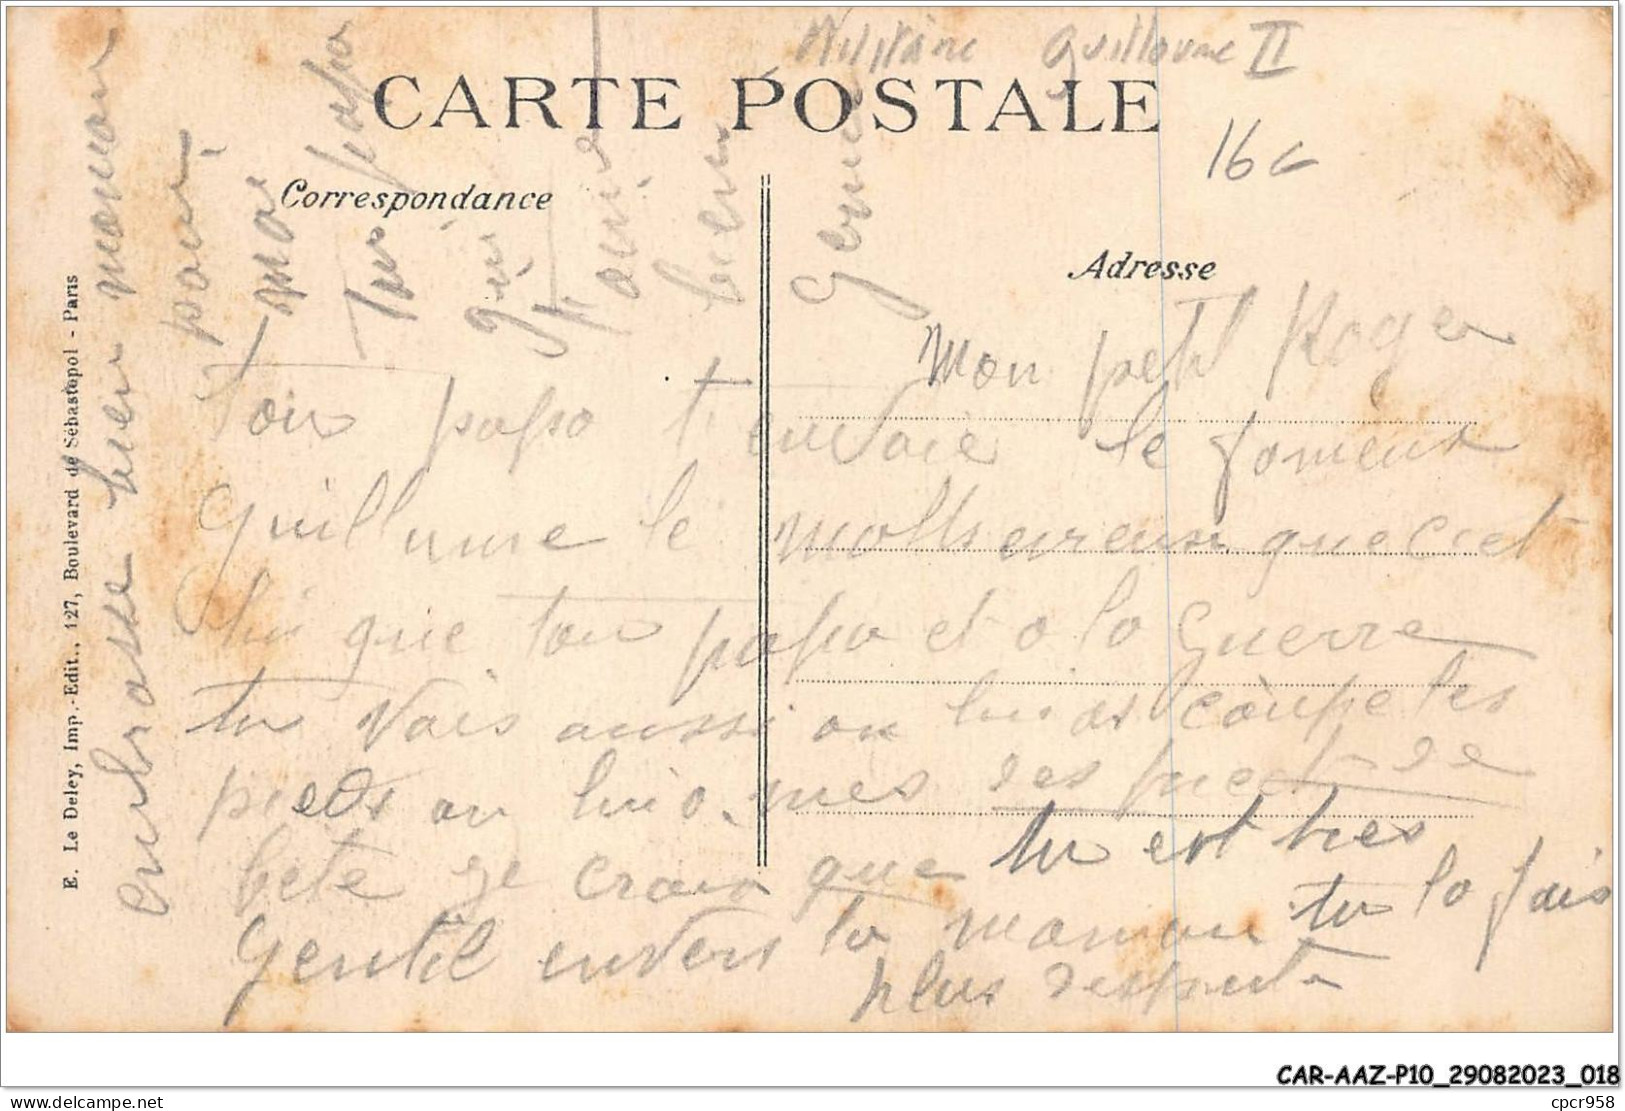 Militaire Guillaume II
CARTE POSTALE
16 c
Correspondance
Adresse
Mon petit Roger
Ton papa t'envoie le fomeux
Guillume le molherereux que c'cet
lui que ton papa et a la Guerre
tu vais aussi on lui as coupe les
pieds on lui a mes des piect de
bete je crois que tu est tres
Gentil envers ta maman tu la fais
plus
embrasse bien maman
pour
moi
ton papa
qui
t'aime
bien
E. Le Deley, Imp.-Edit., 127, Boulevard de Sébastopol - Paris
CAR-AAZ-P10_29082023_018
www.delcampe.net
cpcr958